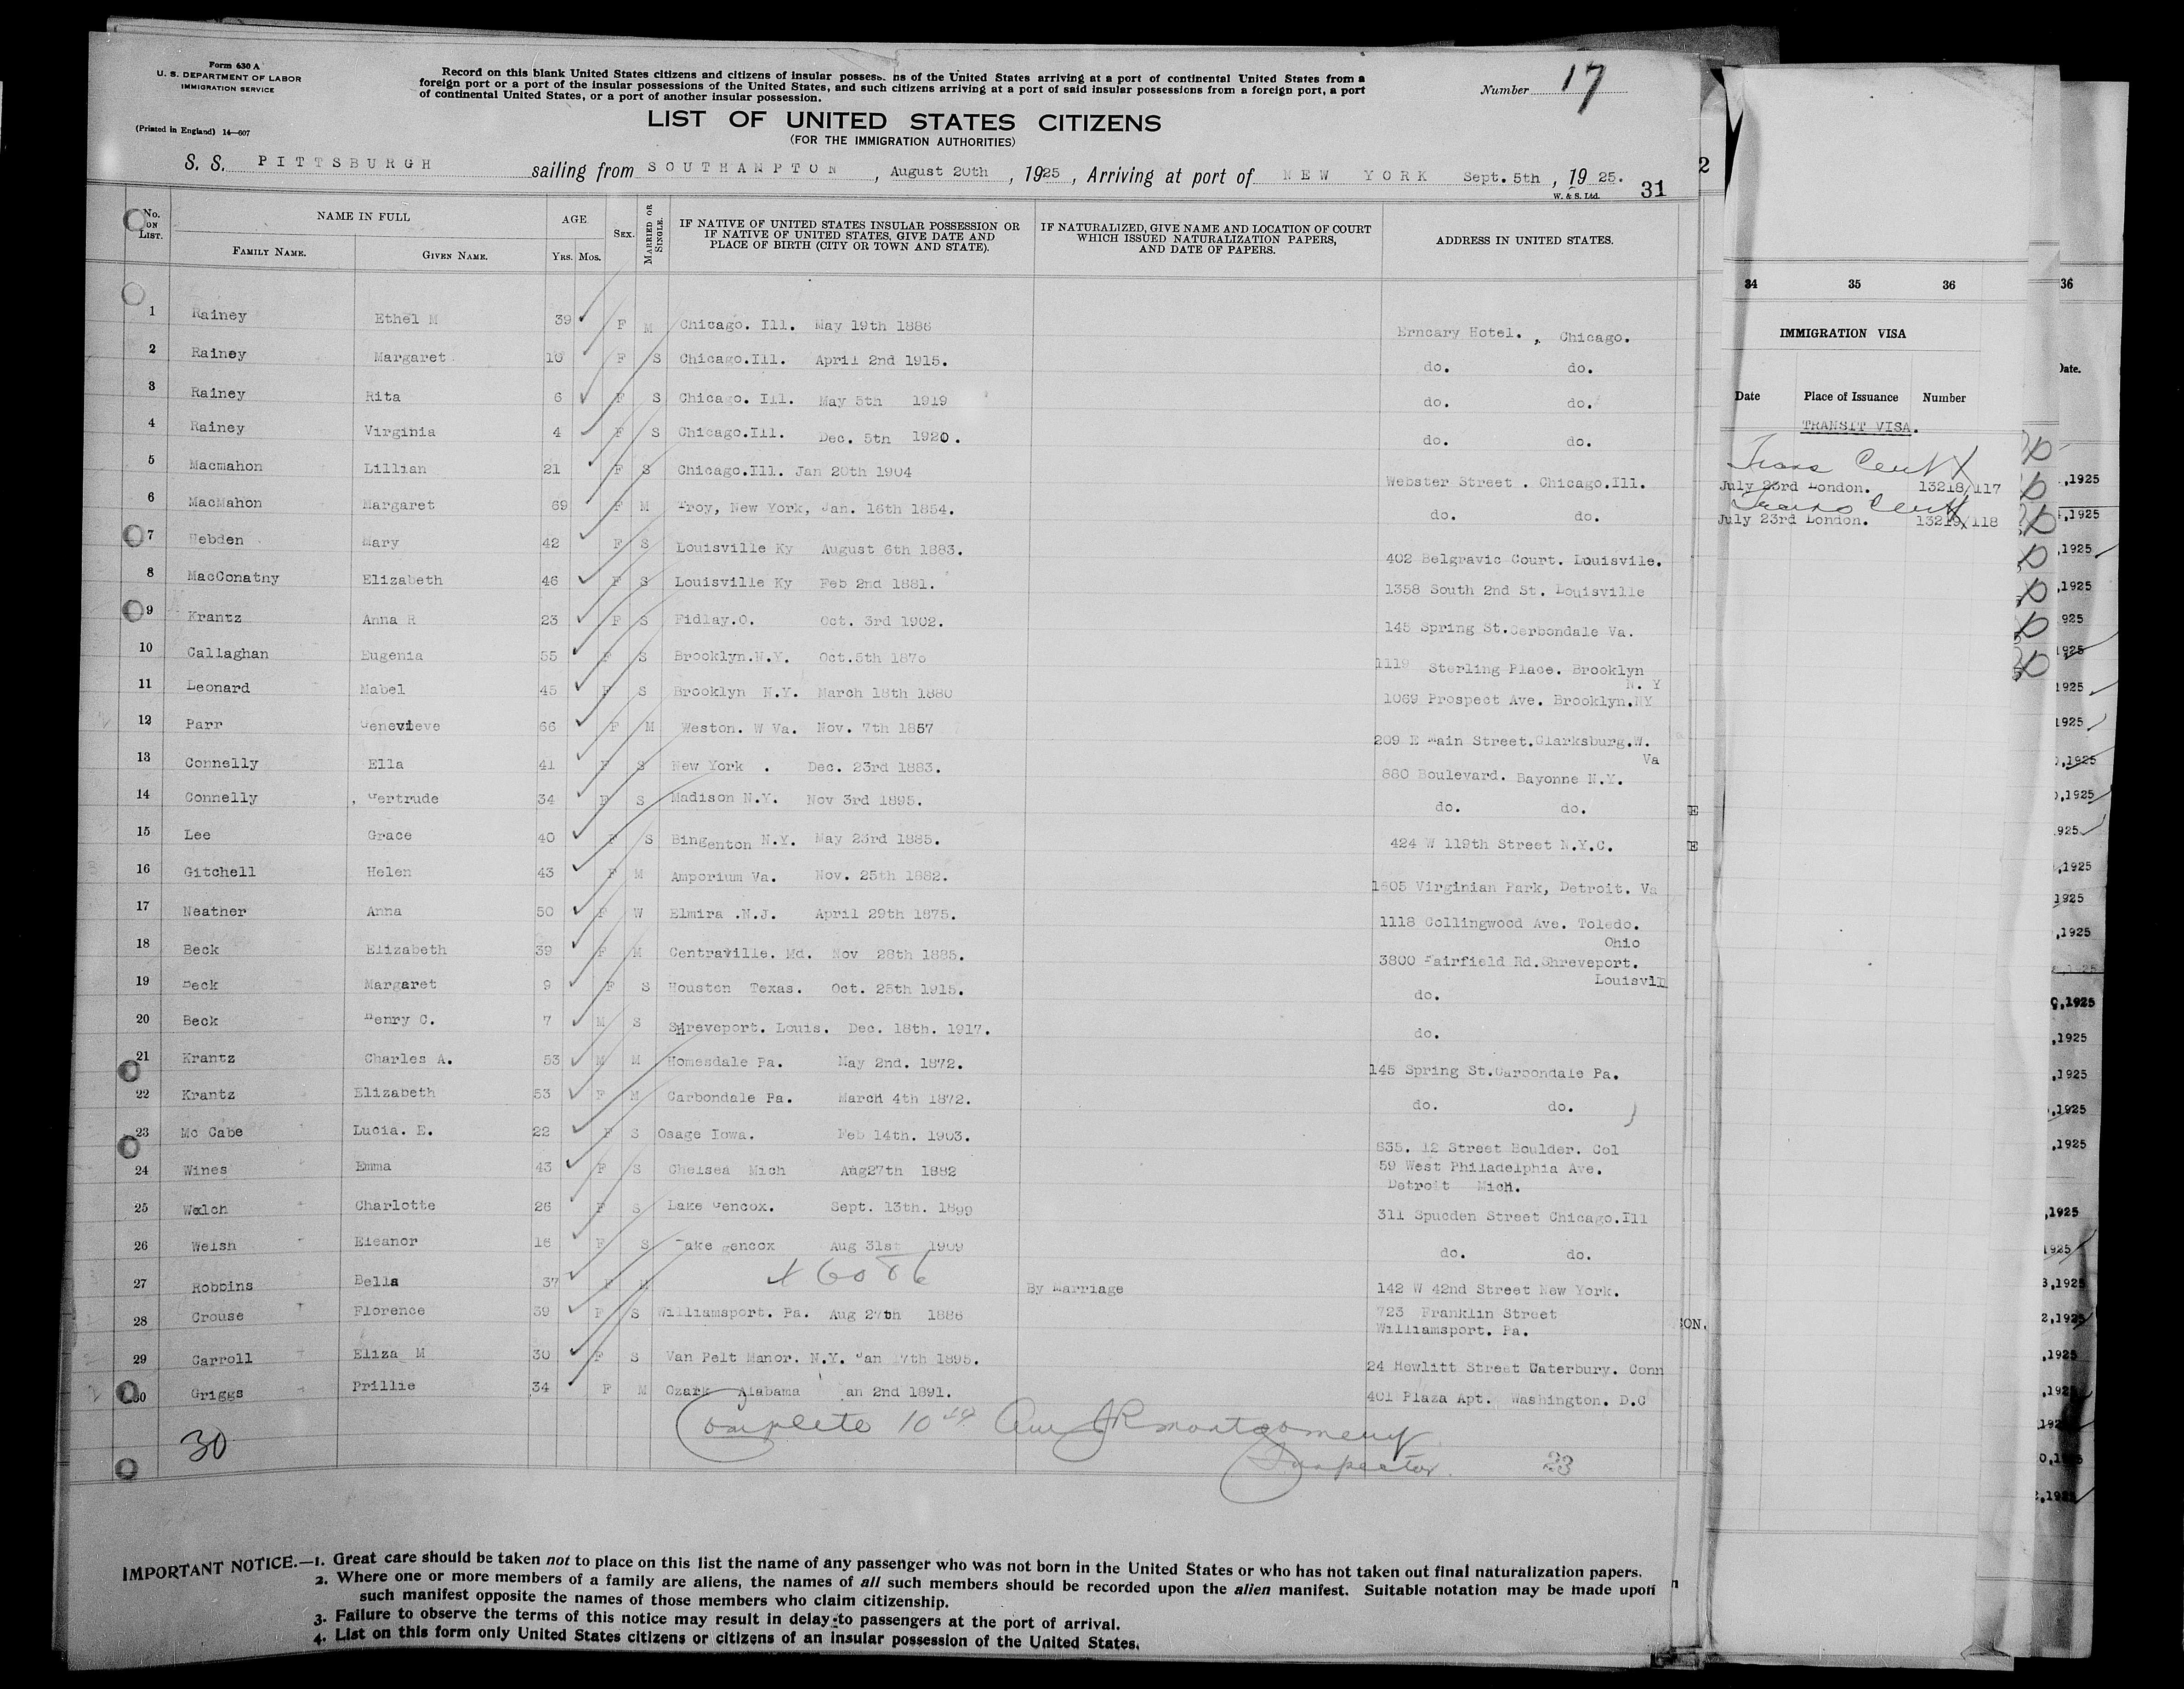 Form 630 A
U. S. DEPARTMENT OF LABOR
IMMIGRATION SERVICE
(Printed in England) 14—607
Record on this blank United States citizens and citizens of insular possess. ns of the United States arriving at a port of continental United States from a
foreign port or a port of the insular possessions of the United States, and such citizens arriving at a port of said insular possessions from a foreign port, a port
of continental United States, or a port of another insular possession.
Number 17
LIST OF UNITED STATES CITIZENS
(FOR THE IMMIGRATION AUTHORITIES)
S. S. PITTSBURGH sailing from SOUTHAMPTON, August 20th, 1925, Arriving at port of NEW YORK Sept. 5th, 1925.
W. & S. Ltd. 31
No. ON LIST. NAME IN FULL AGE SEX. MARRIED OR SINGLE. IF NATIVE OF UNITED STATES INSULAR POSSESSION OR IF NATIVE OF UNITED STATES, GIVE DATE AND PLACE OF BIRTH (CITY OR TOWN AND STATE). IF NATURALIZED, GIVE NAME AND LOCATION OF COURT WHICH ISSUED NATURALIZATION PAPERS, AND DATE OF PAPERS. ADDRESS IN UNITED STATES.
FAMILY NAME. GIVEN NAME. YRS. MOS.
1 Rainey Ethel M 39 F M Chicago. Ill. May 19th 1886 Erncary Hotel. , Chicago.
2 Rainey Margaret 10 F S Chicago.Ill. April 2nd 1915. do. do.
3 Rainey Rita 6 F S Chicago. Ill. May 5th 1919 do. do.
4 Rainey Virginia 4 F S Chicago.Ill. Dec. 5th 1920. do. do.
5 Macmahon Lillian 21 F S Chicago.Ill. Jan 20th 1904 Webster Street . Chicago.Ill.
6 MacMahon Margaret 69 F M Troy, New York, Jan. 16th 1854. do. do.
7 Hebden Mary 42 F S Louisville Ky August 6th 1883. 402 Belgravic Court. Louisvile.
8 MacConatny Elizabeth 46 F S Louisville Ky Feb 2nd 1881. 1358 South 2nd St. Louisville
9 Krantz Anna R 23 F S Fidlay.O. Oct. 3rd 1902. 145 Spring St.Carbondale Va.
10 Callaghan Eugenia 55 F S Brooklyn.N.Y. Oct.5th 1870 1119 Sterling Place. Brooklyn
N. Y
11 Leonard Mabel 45 F S Brooklyn N.Y. March 18th 1880 1069 Prospect Ave. Brooklyn.NY
12 Parr Genevieve 66 F M Weston. W Va. Nov. 7th 1857 209 E Main Street.Clarksburg.W.
Va
13 Connelly Ella 41 F S New York . Dec. 23rd 1883. 880 Boulevard. Bayonne N.Y.
14 Connelly , Gertrude 34 F S Madison N.Y. Nov 3rd 1895. do. do.
15 Lee Grace 40 F S Bingenton N.Y. May 23rd 1885. 424 W 119th Street N.Y.C.
16 Gitchell Helen 43 F M Amporium Va. Nov. 25th 1882. 1605 Virginian Park, Detroit. Va
17 Neather Anna 50 F W Elmira .N.J. April 29th 1875. 1118 Collingwood Ave. Toledo.
Ohio
18 Beck Elizabeth 39 F M Centraville. Md. Nov 28th 1885. 3800 Fairfield Rd.Shreveport.
Louisvin
19 Beck Margaret 9 F S Houston Texas. Oct. 25th 1915. do.
20 Beck Henry C. 7 M S SHreveport. Louis. Dec. 18th. 1917. do.
21 Krantz Charles A. 53 M M Homesdale Pa. May 2nd. 1872. 145 Spring St.Carbondale Pa.
22 Krantz Elizabeth 53 F M Carbondale Pa. March 4th 1872. do. do.
23 Mc Cabe Lucia. E. 22 F S Osage Iowa. Feb 14th. 1903. 835. 12 Street Boulder. Col
24 Wines Emma 43 F S Chelsea Mich Aug27th 1882 59 West Philadelphia Ave.
Detroit Mich.
25 Welch Charlotte 26 F S Lake Gencox. Sept. 13th. 1899 311 Spucden Street Chicago.Ill
26 Welsh Eleanor 16 F S Lake gencox Aug 31st 1909 do. do.
27 Robbins Bella 37 F M By Marriage 142 W 42nd Street New York.
28 Crouse Florence 39 F S Williamsport. Pa. Aug 27th 1886 723 Franklin Street
Williamsport. Pa.
29 Carroll Eliza M 30 F S Van Pelt Manor. N.Y. Jan 17th 1895. 24 Hewlitt Street Waterbury. Conn
30 Griggs Prillie 34 F M Ozark Alabama Jan 2nd 1891. 401 Plaza Apt. Washington. D.C
Complete 10 JR Montgomery
Inspector.
30
23
IMPORTANT NOTICE.—1. Great care should be taken not to place on this list the name of any passenger who was not born in the United States or who has not taken out final naturalization papers.
2. Where one or more members of a family are aliens, the names of all such members should be recorded upon the alien manifest. Suitable notation may be made upon
such manifest opposite the names of those members who claim citizenship.
3. Failure to observe the terms of this notice may result in delay to passengers at the port of arrival.
4. List on this form only United States citizens or citizens of an insular possession of the United States.
2
34 35 36
IMMIGRATION VISA
Date Place of Issuance Number
TRANSIT VISA.
July 23rd London. 13218/117
July 23rd London. 13219/118
E
E
ION.
36
Date.
,1925
,1925
,1925
,1925
925
1925
1925
1925
,1925
,1925
925
,1925
1925
,1925
,1925
,1925
,1925
,1925
,1925
,1925
1925
3,1925
2,1925
,1925